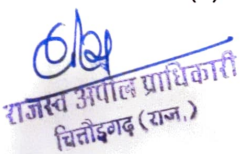 राजस्व अपील प्राधिकारी
चित्तौड़गढ़ (राज.)